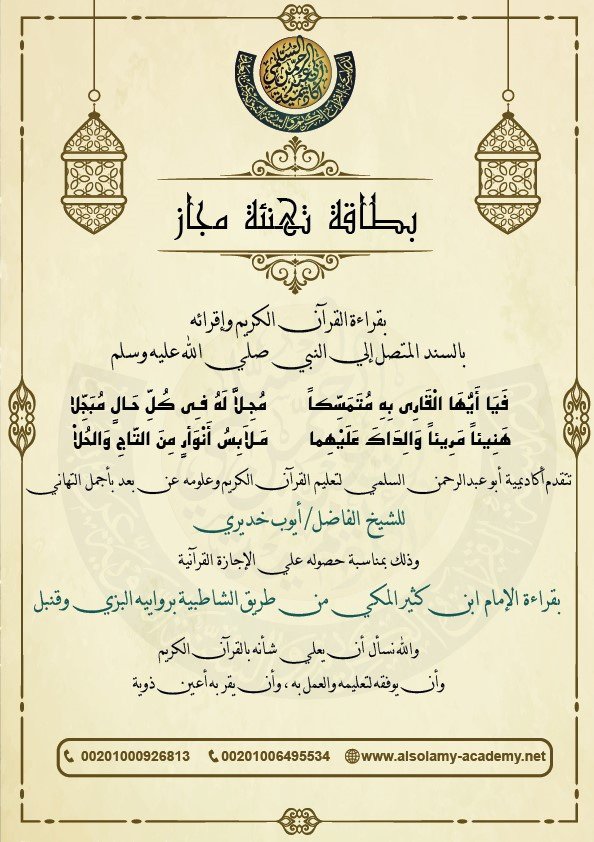 بطاقة تهنئة مجاز
بقراءة القرآن الكريم وإقرائه
بالسند المتصل إلي النبي صلي الله عليه وسلم
فَيَا أَيُّهَا الْقَارِى بِهِ مُتَمَسِّكاً مُجِلاًّ لَهُ فِى كُلِّ حَالٍ مُبَجِّلا
هَنِيئاً مَرِيئاً وَالِدَاكَ عَلَيْهِما مَلَابِسُ أَنْوَأرٍ مِنَ التَّاجِ وَالحُلاْ
تتقدم أكاديمية أبو عبدالرحمن السلمي لتعليم القرآن الكريم وعلومه عن بعد بأجمل التهاني
للشيخ الفاضل/ أيوب خديري
وذلك بمناسبة حصوله علي الإجازة القرآنية
بقراءة الإمام ابن كثير المكي من طريق الشاطبية بروابيه البزي وقنبل
والله نسأل أن يعلي شأنه بالقرآن الكريم
وأن يوفقه لتعليمه والعمل به ، وأن يقر به أعين ذوية
00201000926813 00201006495534 www.alsolamy-academy.net